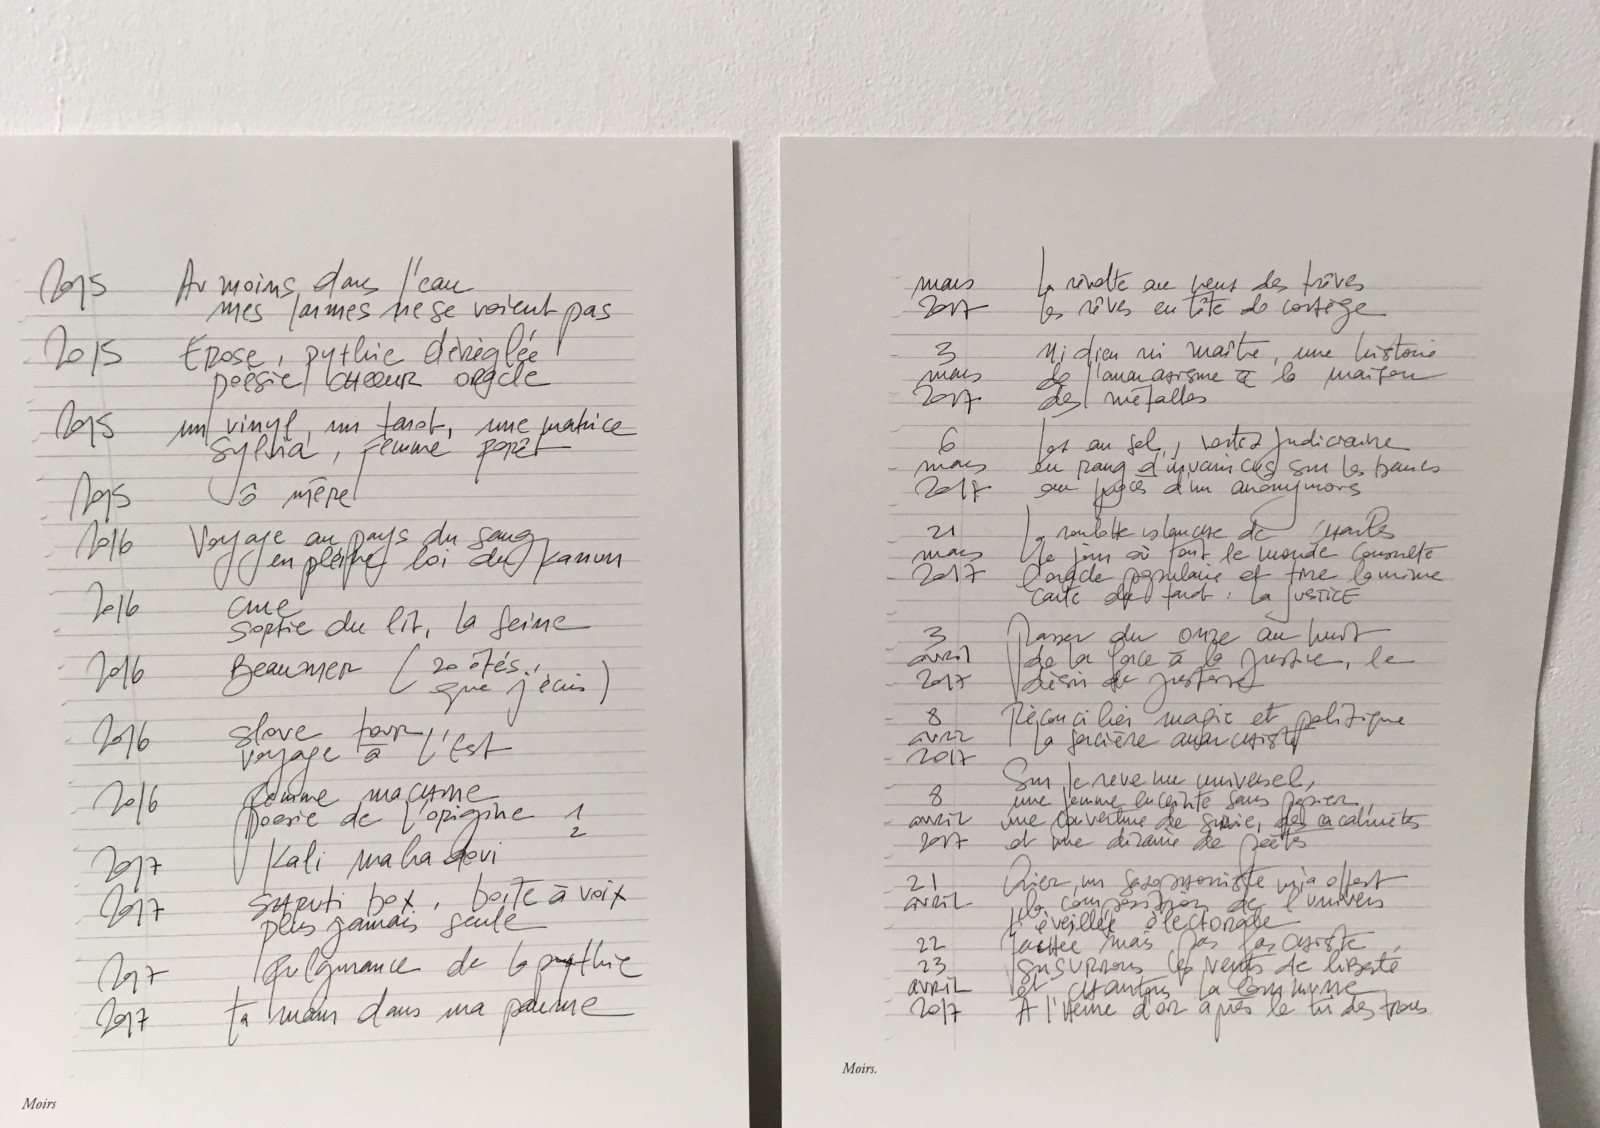 2015 Au moins dans l'eau
mes larmes ne se voient pas
2015 Erose, pythie déréglée
poésie choeur oracle
2015 un vinyl, un tarot, une matrice
Sylvia, femme poret
2015 ô mère
2016 Voyage au pays du sang
en pleine loi du Kanun
2016 crue
sortie du lit, la Seine
2016 Beaumer (20 étés,
que j'écris)
2016 slave tour,
voyage à l'Est
2016 femme machine
poésie de l'origine 1
2
2017 Kali maha devi
2017 shruti box, boîte à voix
plus jamais seule
2017 fulgurance de la pythie
2017 ta main dans ma paume
Moirs
mars la révolte au vent des trêves
2017 les rêves en tête de cortège
3 Ni dieu ni maître, une histoire
mars de l'anarchisme à la maison
2017 des métallos
6 judiciaire
mars en rang d'invaincus sur les bancs
2017 au procès d'un anonymous
21 La roulotte blanche de Charles
mars Le jour où tout le monde consulte
2017 l'oracle populaire et tire la même
carte du tarot : la JUSTICE
3 Passer du onze au huit
avril de la force à la justice, le
2017 désir de justesse
8 Réconcilier magie et politique
avril la sorcière anarchiste
2017
Sur le revenu universel,
8 une femme enceinte sans papier,
avril une couverture de survie, des cacahuètes
2017 et une dizaine de poètes
21 Hier, un saxophoniste m'a offert
avril la composition de l'univers
éveillée électorale
22 fachée mais pas fasciste
23 susurrons les vents de liberté
avril et chantons la Commune
2017 A l'heure d'or après le tri des trous
Moirs.